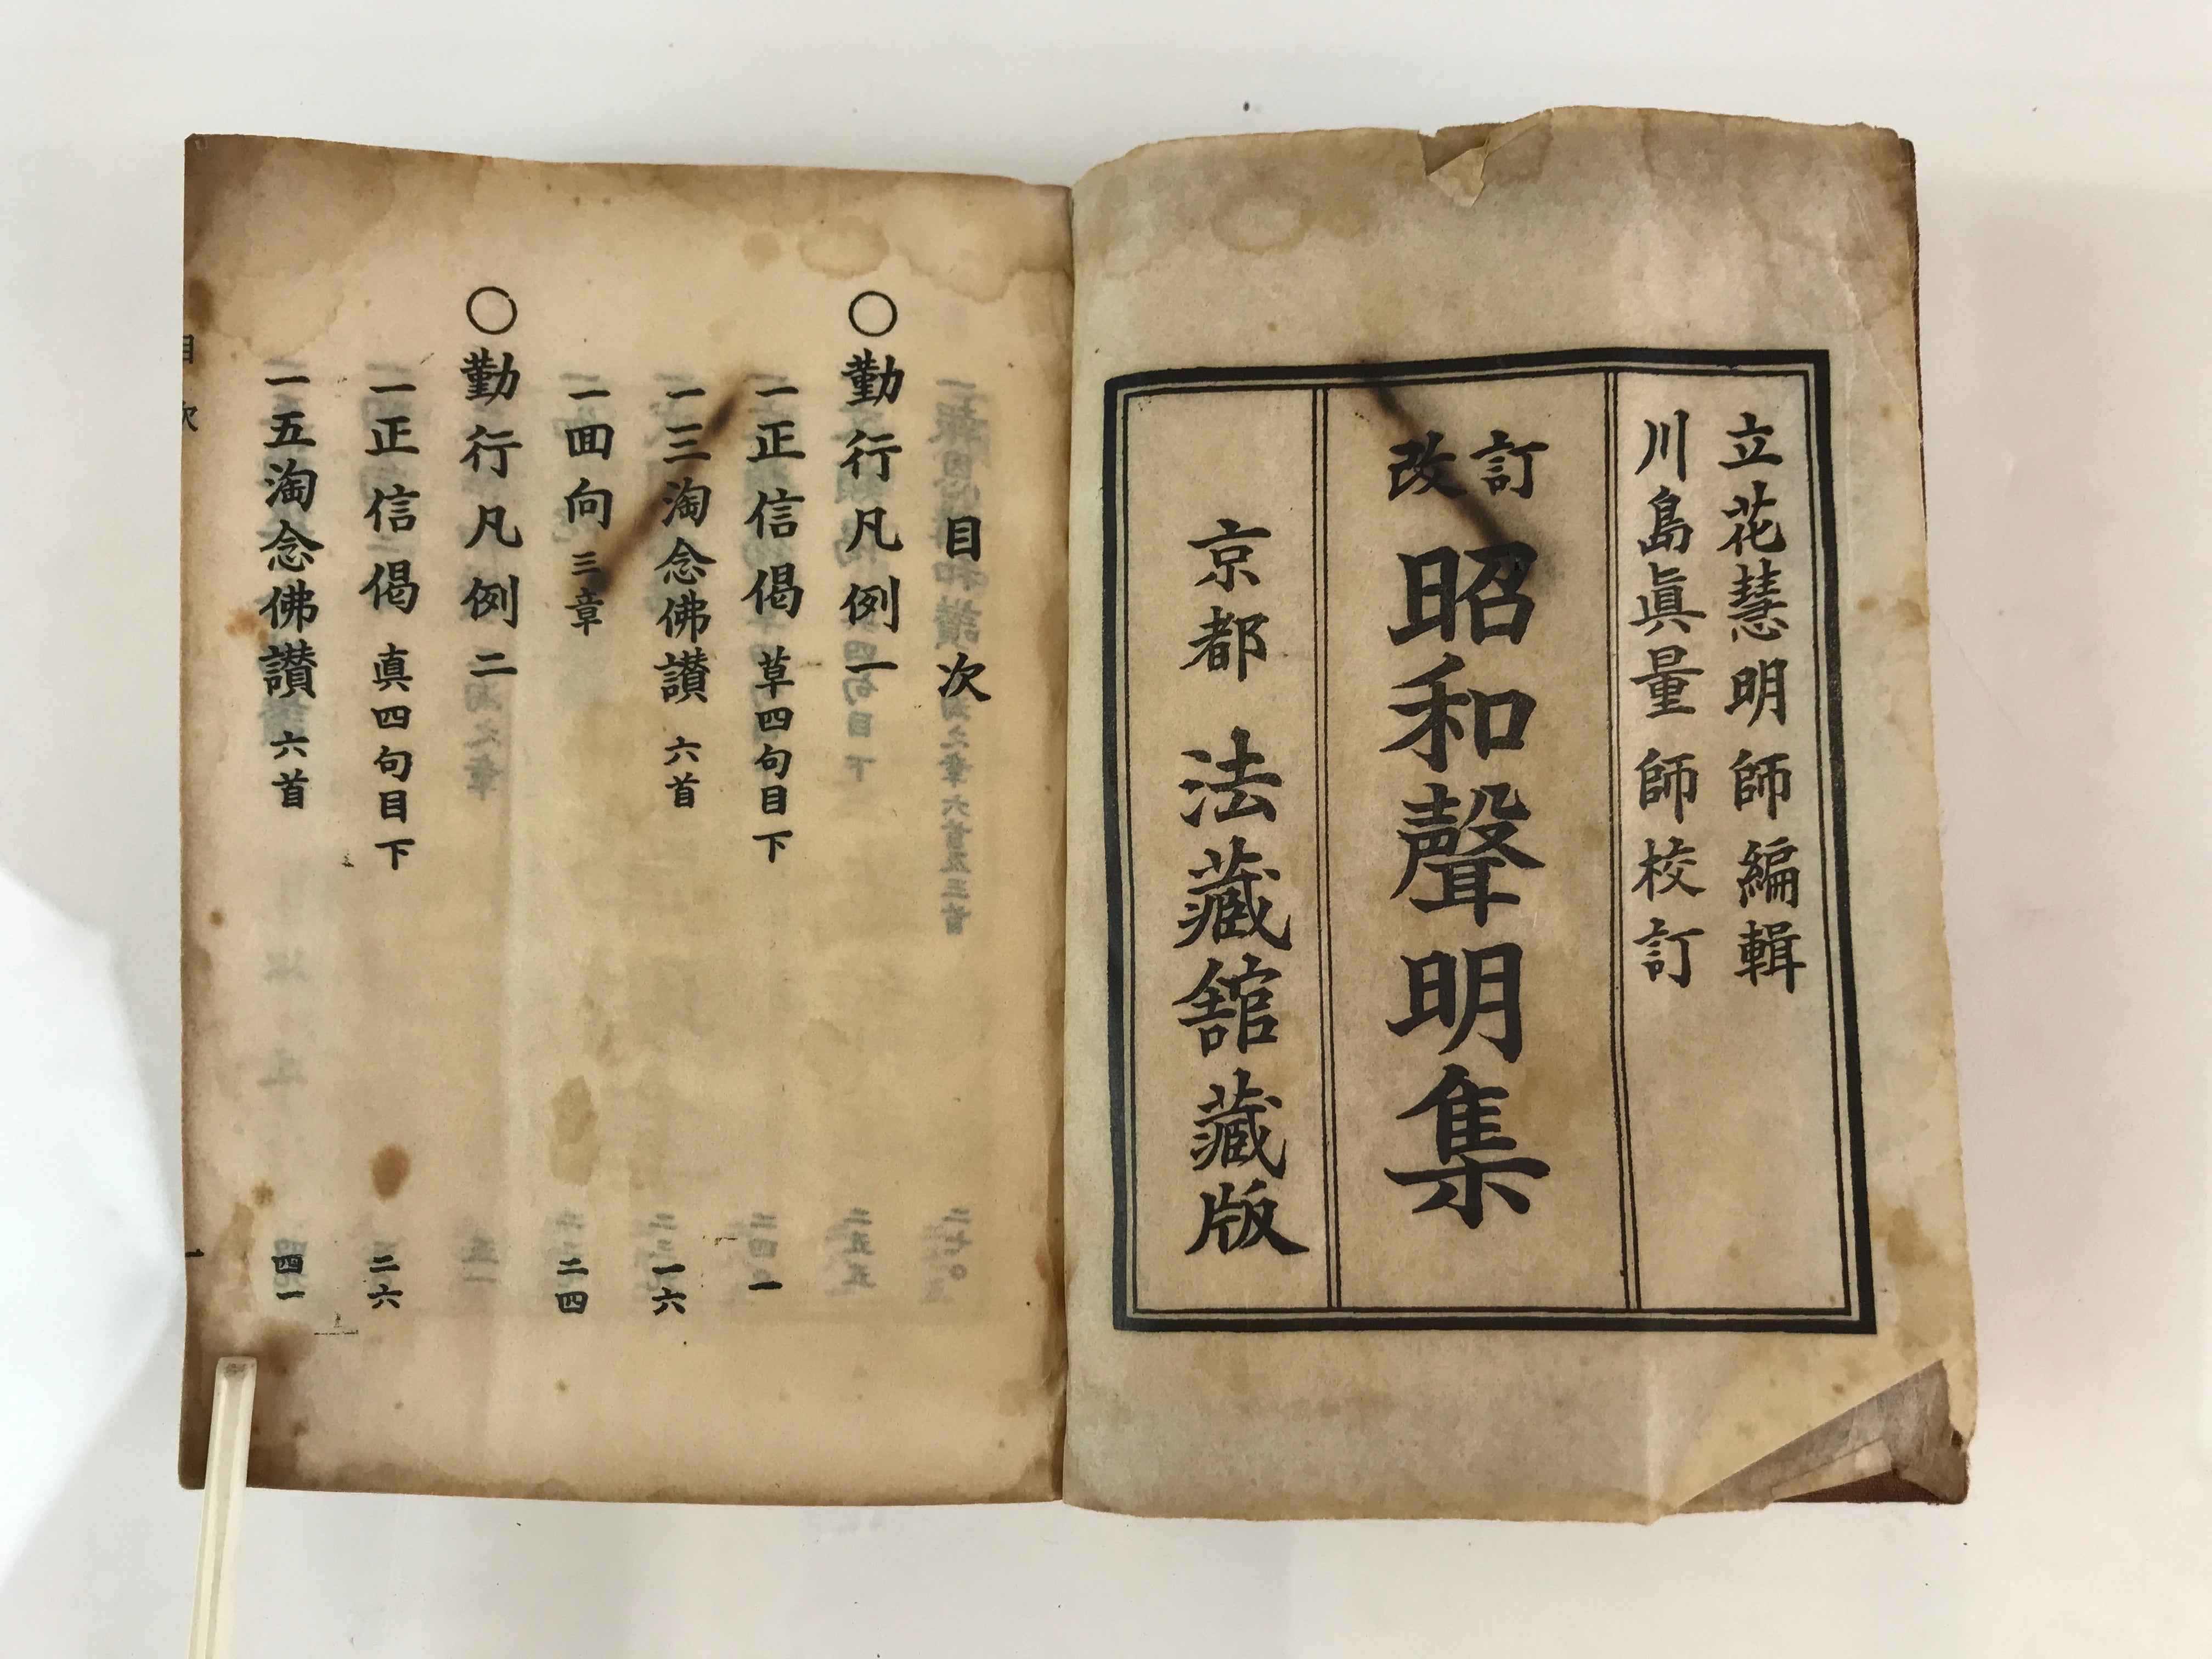 立花慧明師編輯
川島眞量師校訂
改訂
昭和聲明集
京都 法藏舘藏版
目次
○勤行凡例一
一正信偈 草四句目下 一
一三淘念佛讃 六首 一六
一回向 三章 二四
○勤行凡例二
一正信偈 眞四句目下 二六
一五淘念佛讃 六首 四一
目次 一